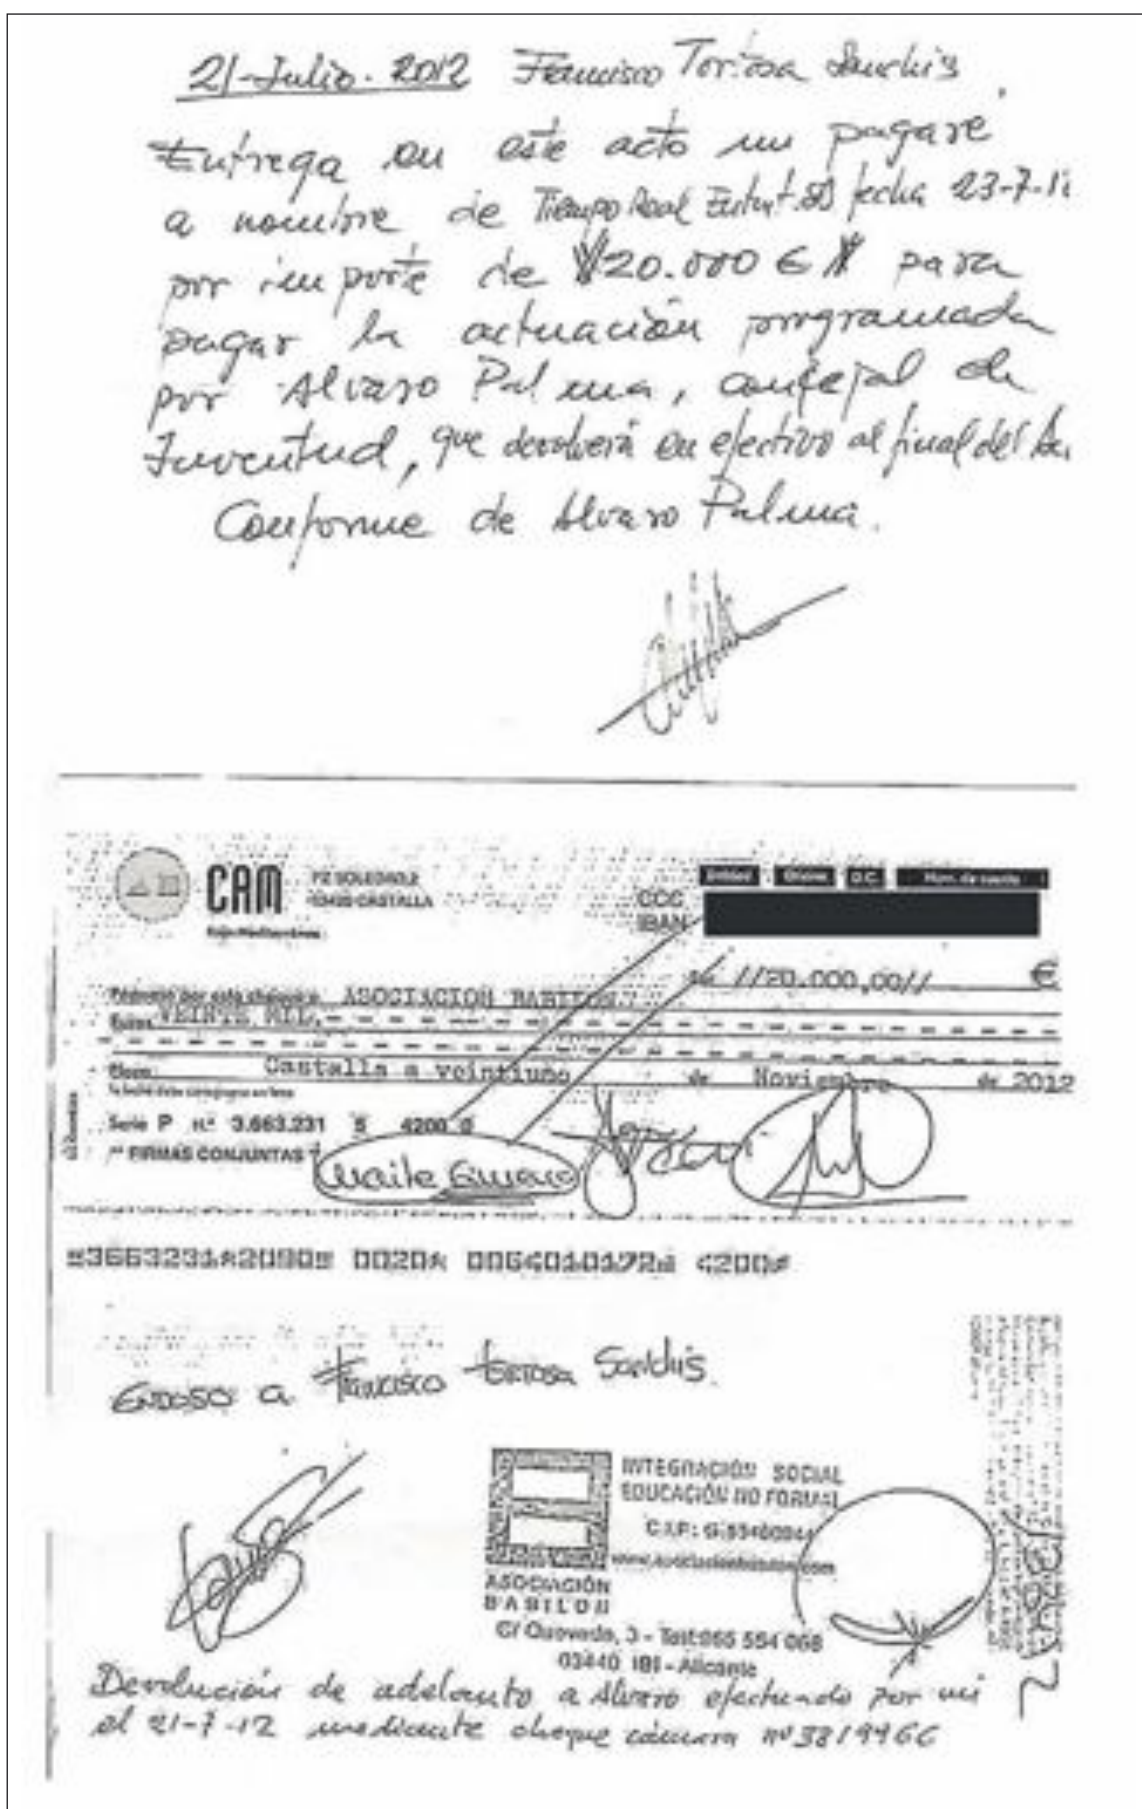 21-Julio-2012 Francisco Tortosa Sanchis,
Entrega en este acto un pagaré
a nombre de Tiempo Real fecha 23-7-1
por importe de 20.000 € para
pagar la actuación programada
por Alvaro Palma, concejal de
Juventud, que devolverá en efectivo al final del
Conforme de Alvaro Palma.
CAM PZ SOLEDAD,2
CASTALLA
CCC
IBAN
Entidad Oficina D.C. Núm. de cuenta
//20.000,00// €
Páguese por este cheque a ASOCIACION BABILON
Euros VEINTE MIL.
Castalla a veintiuno de Noviembre de 2012
Serie P n.º 3.663.231 5 4200 0
FIRMAS CONJUNTAS
Maite
3663231 2090 0020 0064010172 4200
ENDOSO a Francisco tortosa Sanchis.
INTEGRACIÓN SOCIAL
EDUCACIÓN NO FORMAL
C.I.F.:
www.asociacionbabilon.com
ASOCIACIÓN
BABILON
C/ Quevedo, 3 - Telf: 965 554 068
03440 IBI - Alicante
Devolución de adelanto a Alvaro efectuado por mi
el 21-7-12 mediante cheque nº 3819966